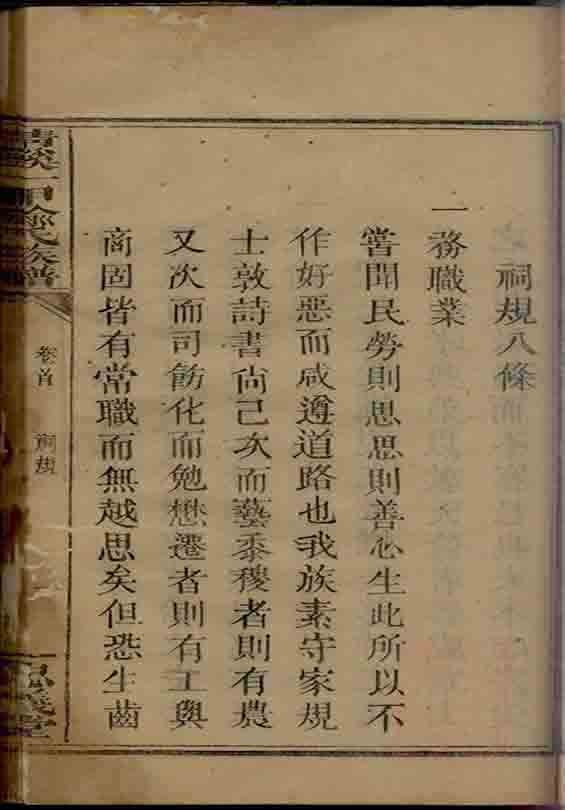 祠規八條
一務職業
嘗聞民勞則思思則善心生此所以不
作好惡而咸遵道路也我族素守家規
士敦詩書尙已次而藝黍稷者則有農
又次而司飭化而勉懋遷者則有工與
商固皆有常職而無越思矣但恐生齒
一甲氏族譜
卷首
祠規
義堂